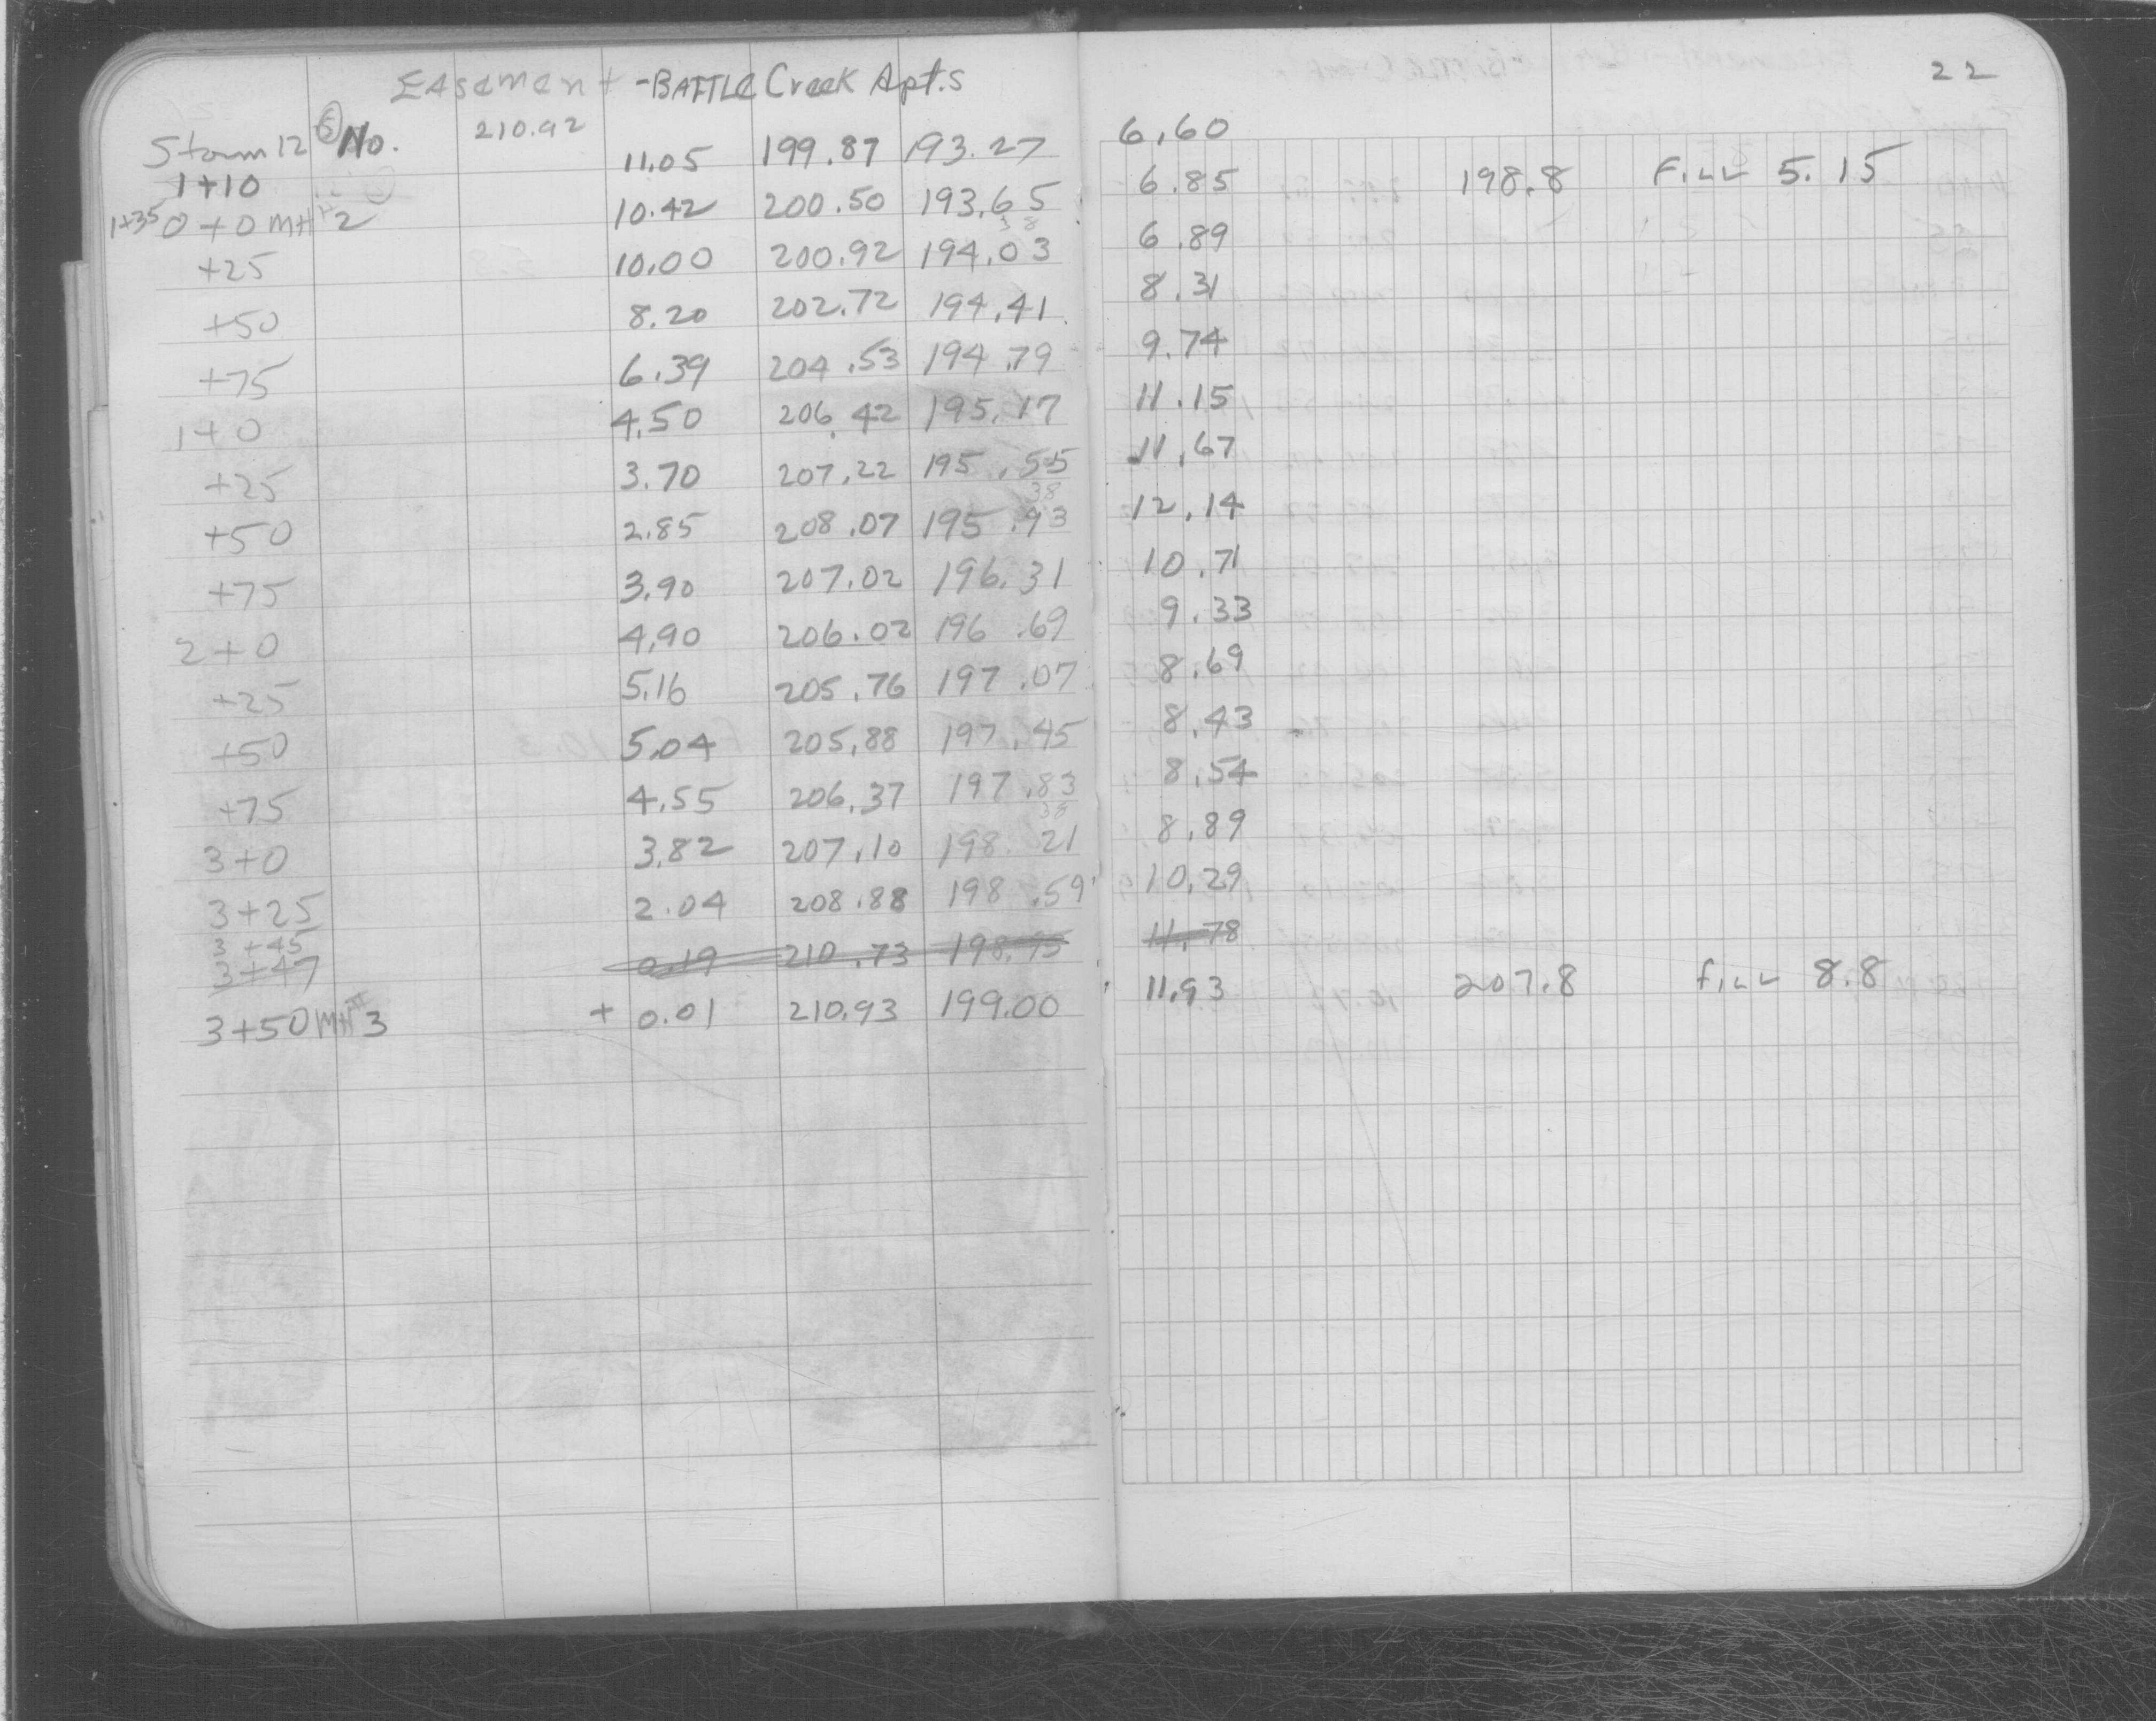 Easement - BATTLE Creek Apt.s
22
Storm 12 No. 210.92 11.05 199.87 193.27 6.60
1+10
1+35 0+0 MH # 2 10.42 200.50 193.65 6.85 198.8 Fill 5.15
38
+25 10.00 200.92 194.03 6.89
+50 8.20 202.72 194.41 8.31
+75 6.39 204.53 194.79 9.74
1+0 4.50 206.42 195.17 11.15
+25 3.70 207.22 195.55 11.67
38
+50 2.85 208.07 195.93 12.14
+75 3.90 207.02 196.31 10.71
2+0 4.90 206.02 196.69 9.33
+25 5.16 205.76 197.07 8.69
+50 5.04 205.88 197.45 8.43
+75 4.55 206.37 197.83 8.54
38
3+0 3.82 207.10 198.21 8.89
3+25 2.04 208.88 198.59 10.29
3+45
3+47 0.19 210.73 198.95 11.78
3+50 MH # 3 + 0.01 210.93 199.00 11.93 207.8 fill 8.8